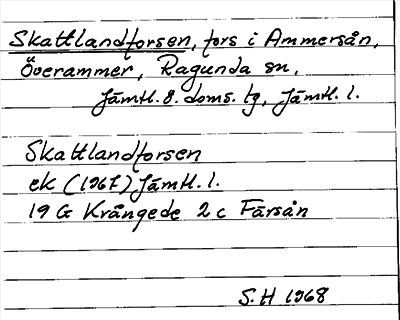 Skattlandforsen, fors i Ammerån,
Överammer, Ragunda sn,
Jämtl. ö. doms. tg, Jämtl. l.
Skattlandforsen
ek (1967) Jämtl. l.
19 G Krångede 2 c Färsån
S. H 1968